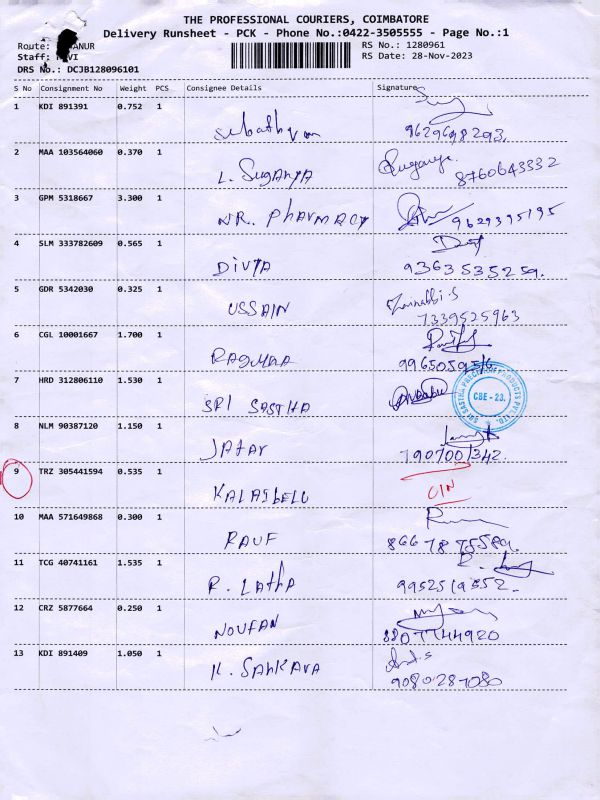 THE PROFESSIONAL COURIERS, COIMBATORE
Delivery Runsheet - PCK - Phone No.:0422-3505555 - Page No.:1
Route: ANUR
RS No.: 1280961
Staff: VI
RS Date: 28-Nov-2023
DRS No.: DCJB128096101
S No Consignment No Weight PCS Consignee Details Signature
1 KDI 891391 0.752 1
9629698293.
2 MAA 103564060 0.370 1
L. Suganya 8760643332
3 GPM 5318667 3.300 1
NR. Pharmacy 9629395195
4 SLM 333782609 0.565 1
Divya 9363535259.
5 GDR 5342030 0.325 1
USSAIN 7339525963
6 CGL 10001667 1.700 1
7 HRD 312806110 1.530 1
SRI SASTHA
SRI SASTHA PRECISION PRODUCTS PVT. LTD.
CBE - 23.
8 NLM 90387120 1.150 1
JAFAR 7907001342.
9 TRZ 305441594 0.535 1
10 MAA 571649868 0.300 1
RAUF
11 TCG 40741161 1.535 1
R. Latha 9952519352
12 CRZ 5877664 0.250 1
NOUFAN 8807744920
13 KDI 891409 1.050 1
K. SANKARA 9080287080